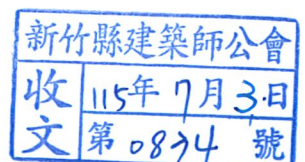 新竹縣建築師公會
收文
115年7月3日
第0834號